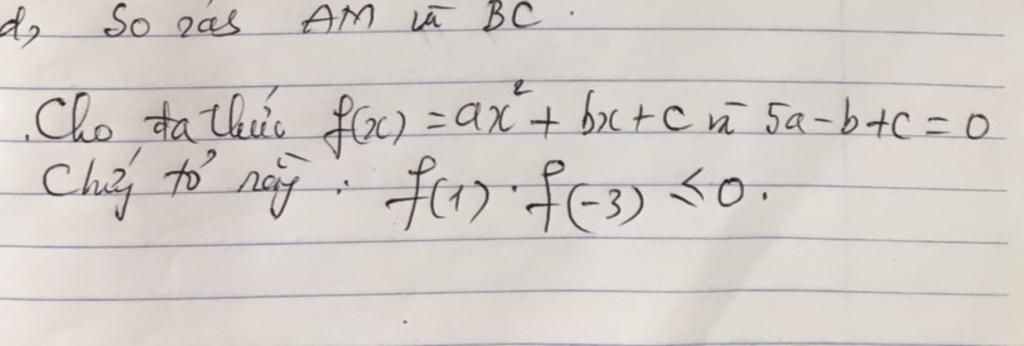 d, So sás AM và BC.
.Cho đa thức f(x) = ax² + bx + c và 5a - b + c = 0
Chứng tỏ rằng : f(1) . f(-3) ≤ 0.